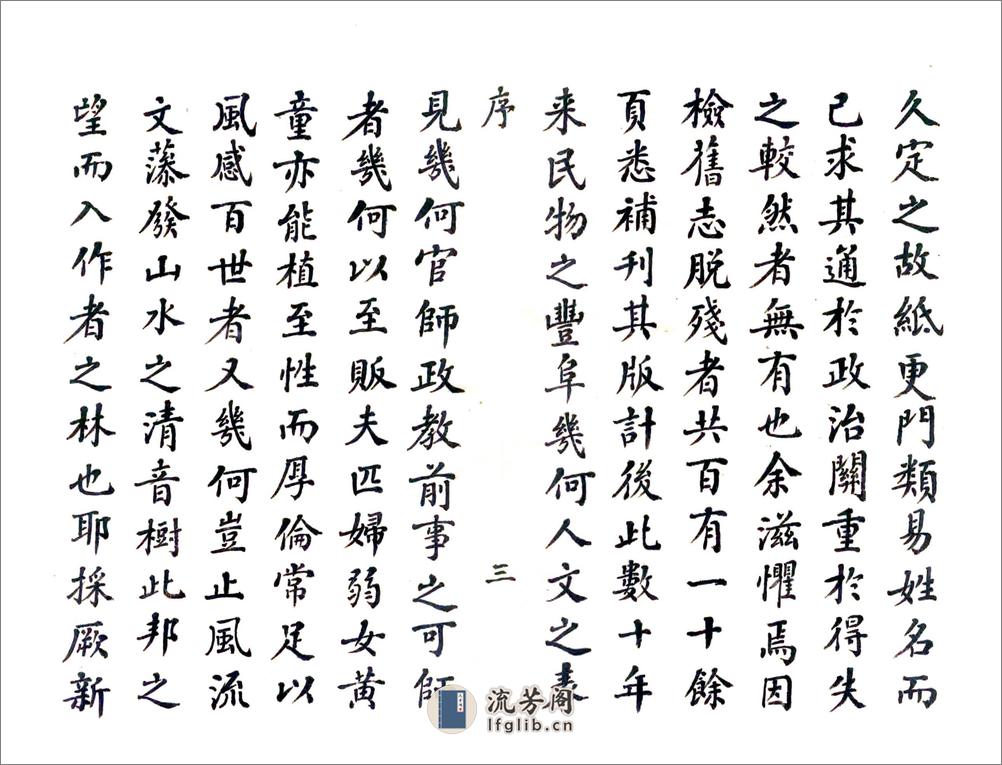 久定之故紙更門類易姓名而
已求其通於政治關重於得失
之較然者無有也余滋懼焉因
檢舊志脱殘者共百有一十餘
頁悉補刊其版計後此數十年
来民物之豐阜幾何人文之表
序 三
見幾何官師政教前事之可師
者幾何以至販夫匹婦弱女黄
童亦能植至性而厚倫常足以
風感百世者又幾何豈止風流
文藻發山水之清音樹此邦之
望而入作者之林也耶採厥新
流芳阁
lfglib.cn